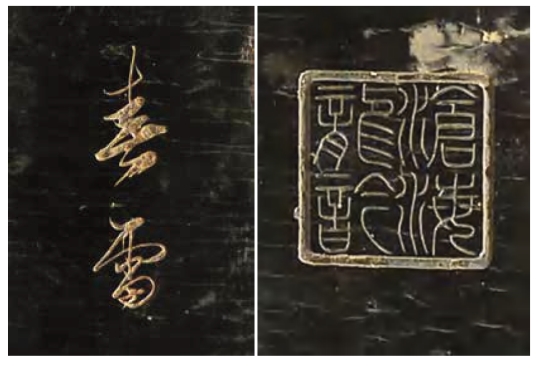 春雷
滄海
龍訡